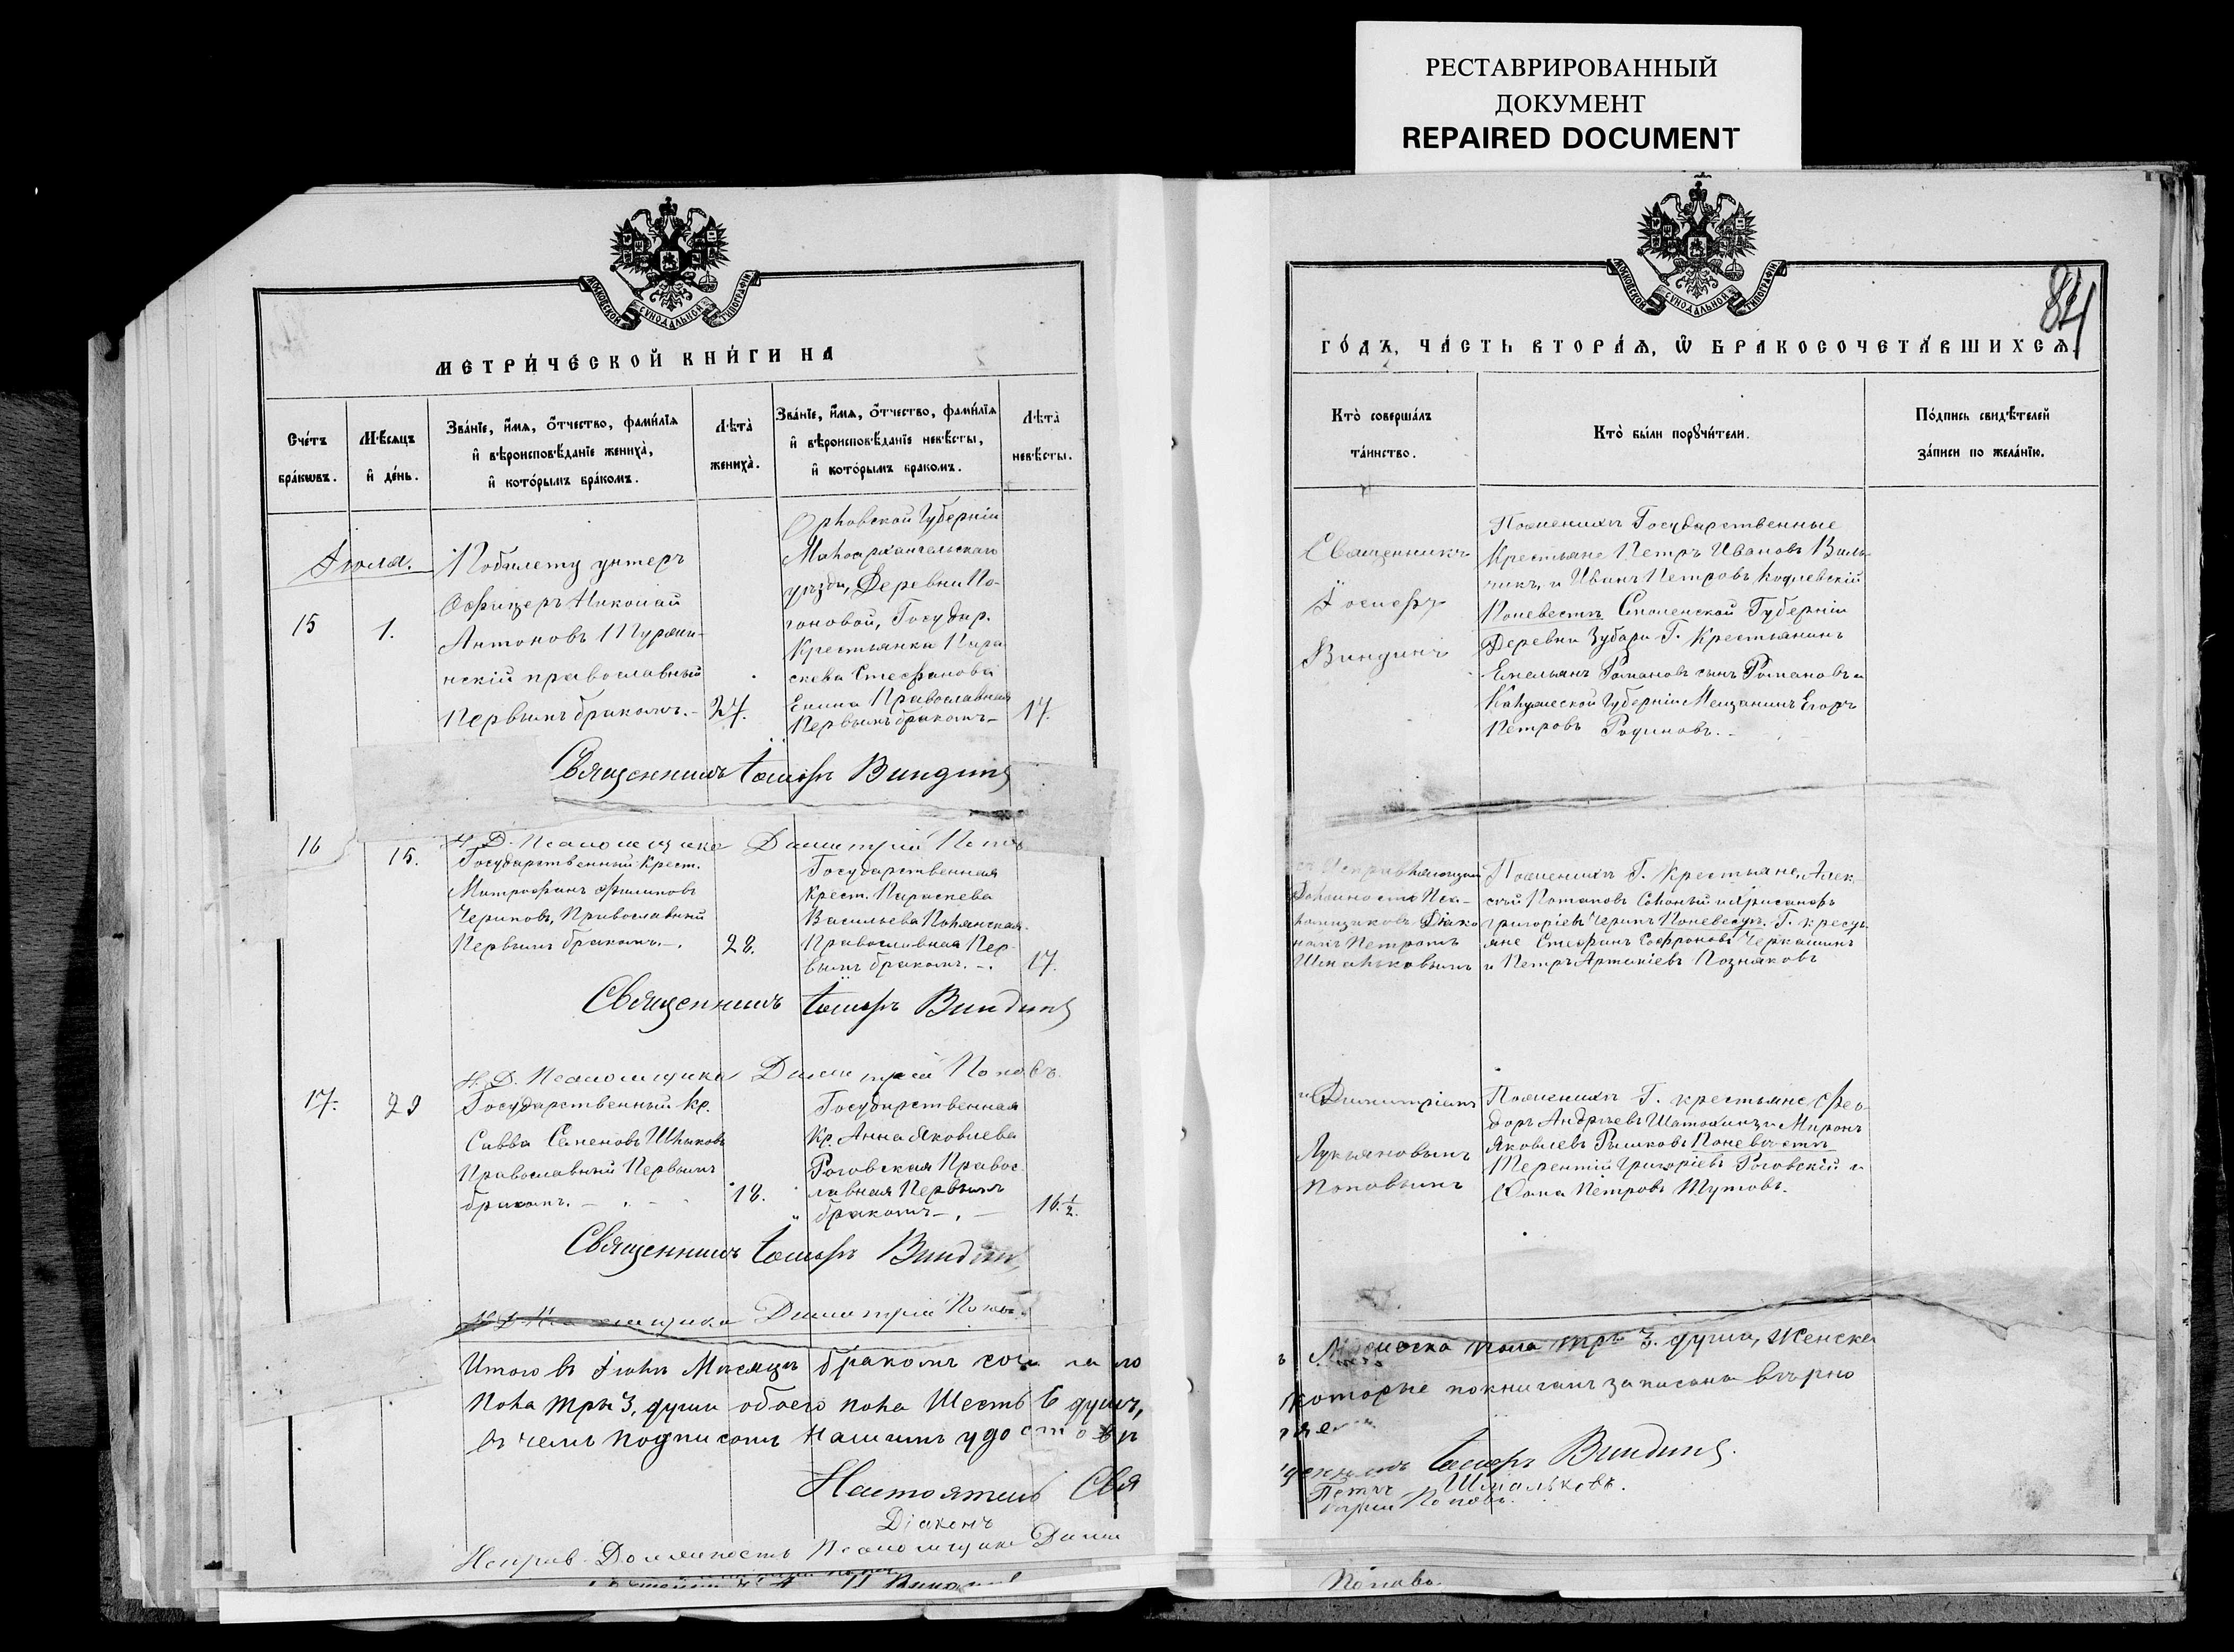 РЕСТАВРИРОВАННЫЙ
ДОКУМЕНТ
REPAIRED DOCUMENT
МОСКОВСКОЙ СѴНОДАЛЬНОЙ ТИПОГРАФІИ
МЕТРИ́ЧЕСКОЙ КНИ́ГИ НА
Сче́тъ бра́кωвъ.
Мѣ́сяцъ и҆ де́нь.
Зва́нїе, и҆́мя, ѻ҆́тчество, фами́лїя
и҆ вѣроисповѣ́данїе жениха̀,
и҆ кото́рымъ бра́комъ.
Лѣта̀ жениха̀.
Зва́нїе, и҆́мя, ѻ҆́тчество, фами́лїя
и҆ вѣроисповѣ́данїе невѣ́сты,
и҆ кото́рымъ бракомъ.
Лѣта̀ невѣ́сты.
Іюля.
15
1.
Побилету унтеръ
Офицеръ Николай
Антоновъ
нскій православный
Первымъ бракомъ.-
27.
Орловской Губерніи
Малоархангельскаго
уѣзда, Деревни По-
гоновой, Государ.
Крестьянка Пара
скева Стефанова
Енина Православная
Первымъ бракомъ-
17.
Священникъ Іосифъ Виндингъ
И. Д. Псаломщика Димитрій Попов
16
15.
Государственный Крест.
Митрофанъ Филиповъ
Чериповъ, Православный
Первымъ бракомъ.-.
22.
Государственная
Крест. Параскева
Васильева Полянская
Православная Пер-
вымъ бракомъ.-.
17.
Священникъ Іосифъ Виндингъ
И. Д. Псаломщика Димитрій Поповъ.
17.
29
Государственный Кр.
Савва Семеновъ Шлыковъ
Православный Первымъ
бракомъ.-
18.
Государственная
Кр. Анна Яковлева
Роговская Правос-
лавная Первымъ
бракомъ-.
16. 1/2.
Священникъ Іосифъ Виндингъ
И. Д. Псаломщика Димитрій Попов
Итого въ Іюлѣ Мѣсяцѣ бракомъ
пола три 3. души обоего пола Шесть 6 душъ,
въ чемъ подписомъ нашимъ удостовѣ
Настоятель Свя
Діаконъ
Исправ. Должность Псаломщика Дими
МОСКОВСКОЙ СѴНОДАЛЬНОЙ ТИПОГРАФІИ
84
ГО́ДЪ, ЧА́СТЬ ВТОРА́Я, Ѽ БРАКОСОЧЕТА́ВШИХСЯ.
Кто̀ соверша́лъ
та́инство.
Кто̀ бы́ли порꙋчи́тели.
По́дпись свидѣ́телей
за́писи по жела́нїю.
Священникъ
Іосифъ
Виндингъ
Поженихѣ Государственные
Крестьяне Петръ Ивановъ Виль-
чикъ, и Иванъ Петровъ
Поневестѣ Смоленской Губерніи
Деревни Зубари Г. Крестьянинъ
Емельянъ Романовъ сынъ Романовъ и
Калужской Губерніи Мещанинъ Егоръ
Петровъ Родиновъ.-
съ Исправляющимъ
Должность Пса-
ломщиковъ Діако
номъ Петромъ
Шмальковымъ
Поженихѣ Г. Крестьяне, Алек-
сѣй Потаповъ и Хрисанфъ
Григоріевъ Черипъ Поневестѣ. Г. кресть
яне Стефанъ Софроновъ Черкашинъ
и Петръ Артикіевъ Позняковъ
и Димитріемъ
Лукьяновымъ
Поповымъ
Поженихѣ Г. крестьяне Фео-
доръ Андрѣевъ Шатохинъ и Миронъ
Яковлевъ Рыжковъ Поневѣстѣ
Терентій Григоріевъ Роговскій и
Фома Петровъ Тутовъ.
пола три 3. души, Женска
которые покнигамъ записана вѣрно
Іосифъ Виндингъ.
Петръ Шмальковъ.
Поповъ.
Попова